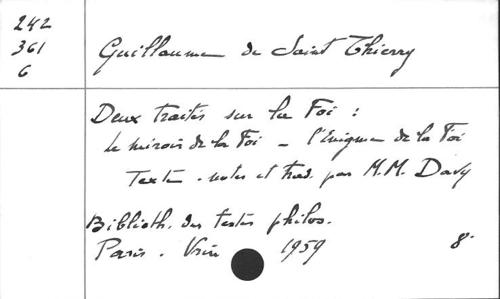 242
361
6
Guillaume de Saint Thierry
Deux traités sur la Foi :
le miroir de la Foi - l'Enigme de la Foi
Texte - notes et trad. par M.M. Davy
Biblioth. des textes philos.
Paris - Vrin 1959 8°